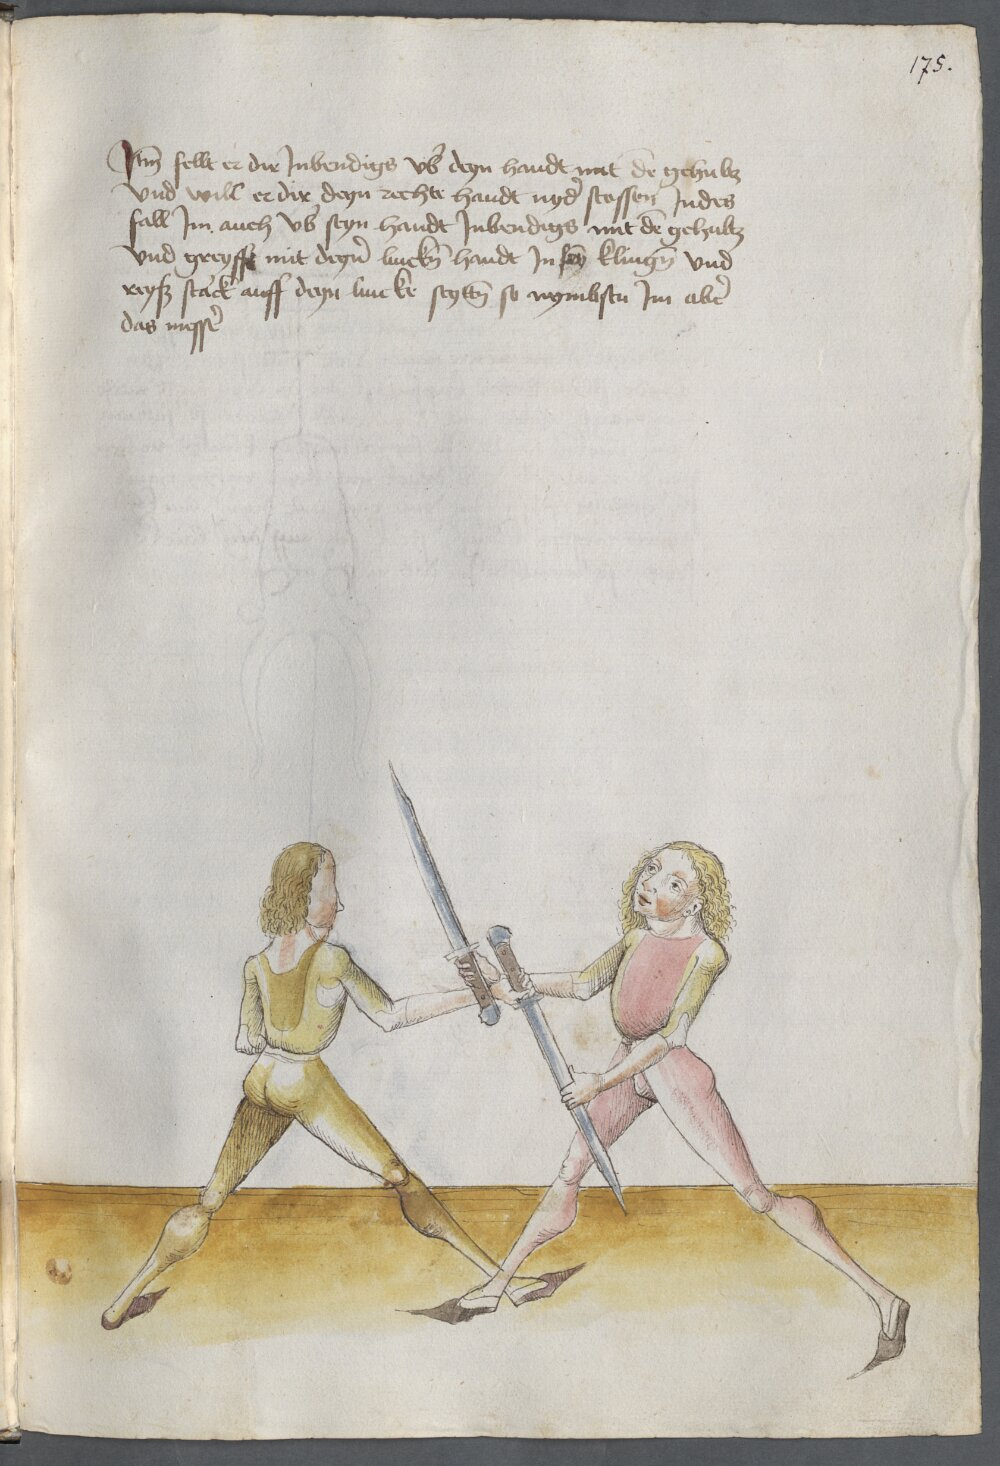 175.
Itm̄ fellt er dir Inbendigs vb̄ deyn handt mit dē gehultz
vnd will er dir deyn rechte handt nyd̄ stossen Indes
fall Im auch vb̄ seyn handt Inbendigs mit dē gehultz
vnd greyff mit deyn̄ linckn̄ handt In sey klingn̄ vnd
reyß starck auff deyn lincke seyttn̄ so nymbstu Im abē
das messē